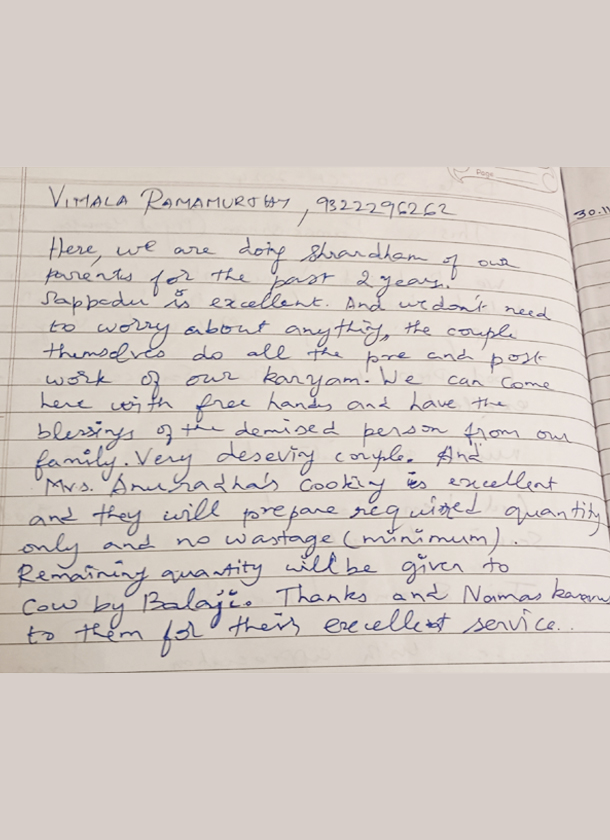 Page
30.11
VIMALA RAMAMURTHY, 9322296262
Here, we are doing Shrardham of our
parents for the past 2 years.
Sappadu is excellent. And we don't need
to worry about anything, the couple
themselves do all the pre and post
work of our karyam. We can come
here with free hands and have the
blessings of the demised person from our
family. Very deserving couple. And
Mrs. Anuradha's cooking is excellent
and they will prepare required quantity
only and no wastage (minimum).
Remaining quantity will be given to
cow by Balaji. Thanks and Namaskaram
to them for their excellent service..